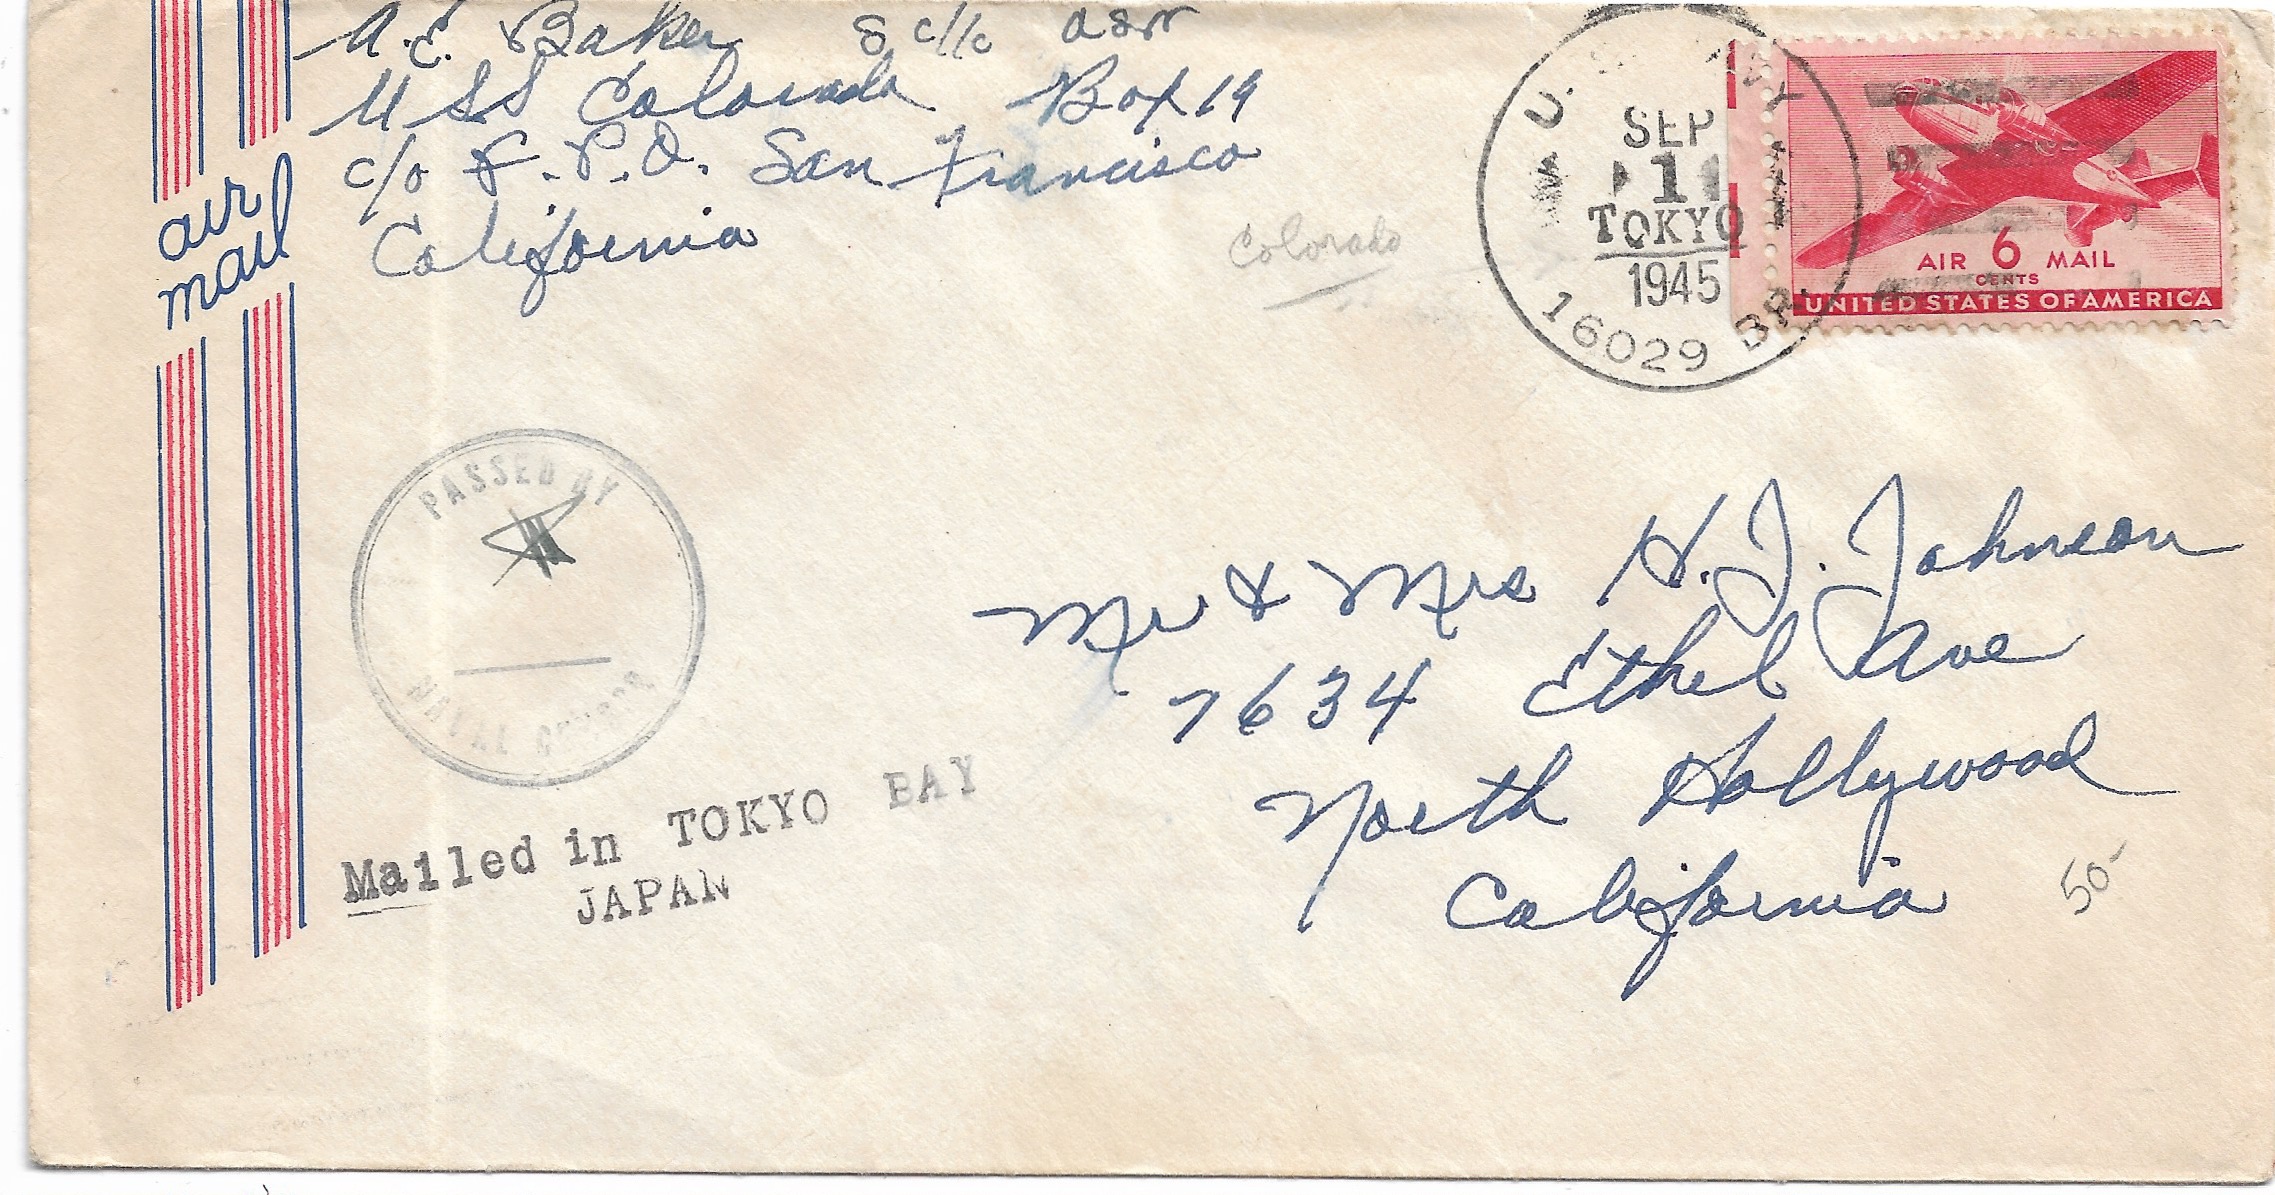 A. E. Baker S c/1c USN
USS Colorado Box 19
c/o F.P.O. San Francisco
California
air
mail
Colorado
U. S. NAVY
SEP
1
TOKYO
1945
16029 BR.
AIR 6 MAIL
CENTS
UNITED STATES OF AMERICA
PASSED BY
NAVAL CENSOR
Mailed in TOKYO BAY
JAPAN
Mr & Mrs H. J. Johnson
7634 Ethel Ave
North Hollywood
California
50-